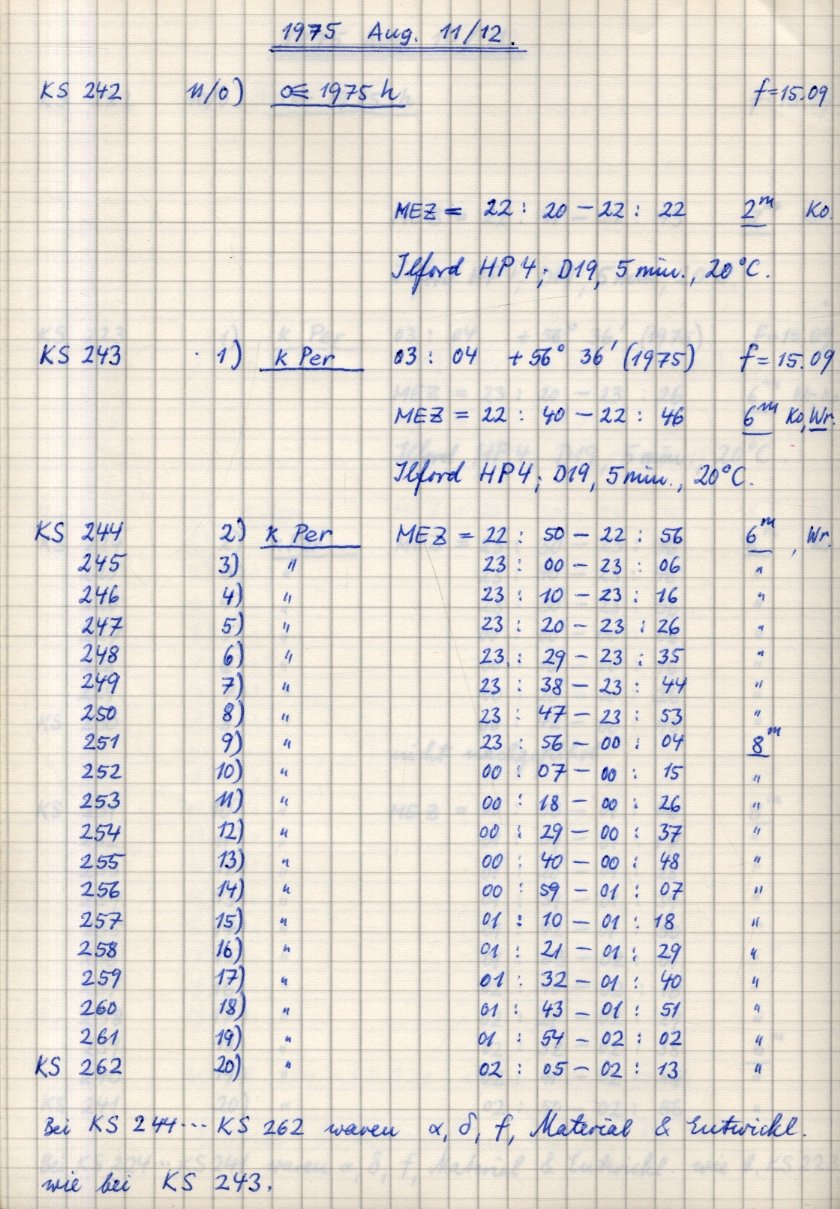 1975 Aug. 11/12.
KS 242 n/o) 1975 h f=15.09
MEZ = 22 : 20 – 22 : 22 2ᵐ Ko
Ilford HP4; D19, 5 min., 20°C.
KS 243 · 1) k Per 03 : 04 +56° 36' (1975) f=15.09
MEZ = 22 : 40 – 22 : 46 6ᵐ Ko, Wr.
Ilford HP4; D19, 5 min., 20°C.
KS 244 2) k Per MEZ = 22 : 50 – 22 : 56 6ᵐ, Wr.
245 3) " 23 : 00 – 23 : 06 "
246 4) " 23 : 10 – 23 : 16 "
247 5) " 23 : 20 – 23 : 26 "
248 6) " 23 : 29 – 23 : 35 "
249 7) " 23 : 38 – 23 : 44 "
250 8) " 23 : 47 – 23 : 53 "
251 9) " 23 : 56 – 00 : 04 8ᵐ
252 10) " 00 : 07 – 00 : 15 "
253 11) " 00 : 18 – 00 : 26 "
254 12) " 00 : 29 – 00 : 37 "
255 13) " 00 : 40 – 00 : 48 "
256 14) " 00 : 59 – 01 : 07 "
257 15) " 01 : 10 – 01 : 18 "
258 16) " 01 : 21 – 01 : 29 "
259 17) " 01 : 32 – 01 : 40 "
260 18) " 01 : 43 – 01 : 51 "
261 19) " 01 : 54 – 02 : 02 "
KS 262 20) " 02 : 05 – 02 : 13 "
Bei KS 244 ··· KS 262 waren α, δ, f, Material & Entwickl.
wie bei KS 243.